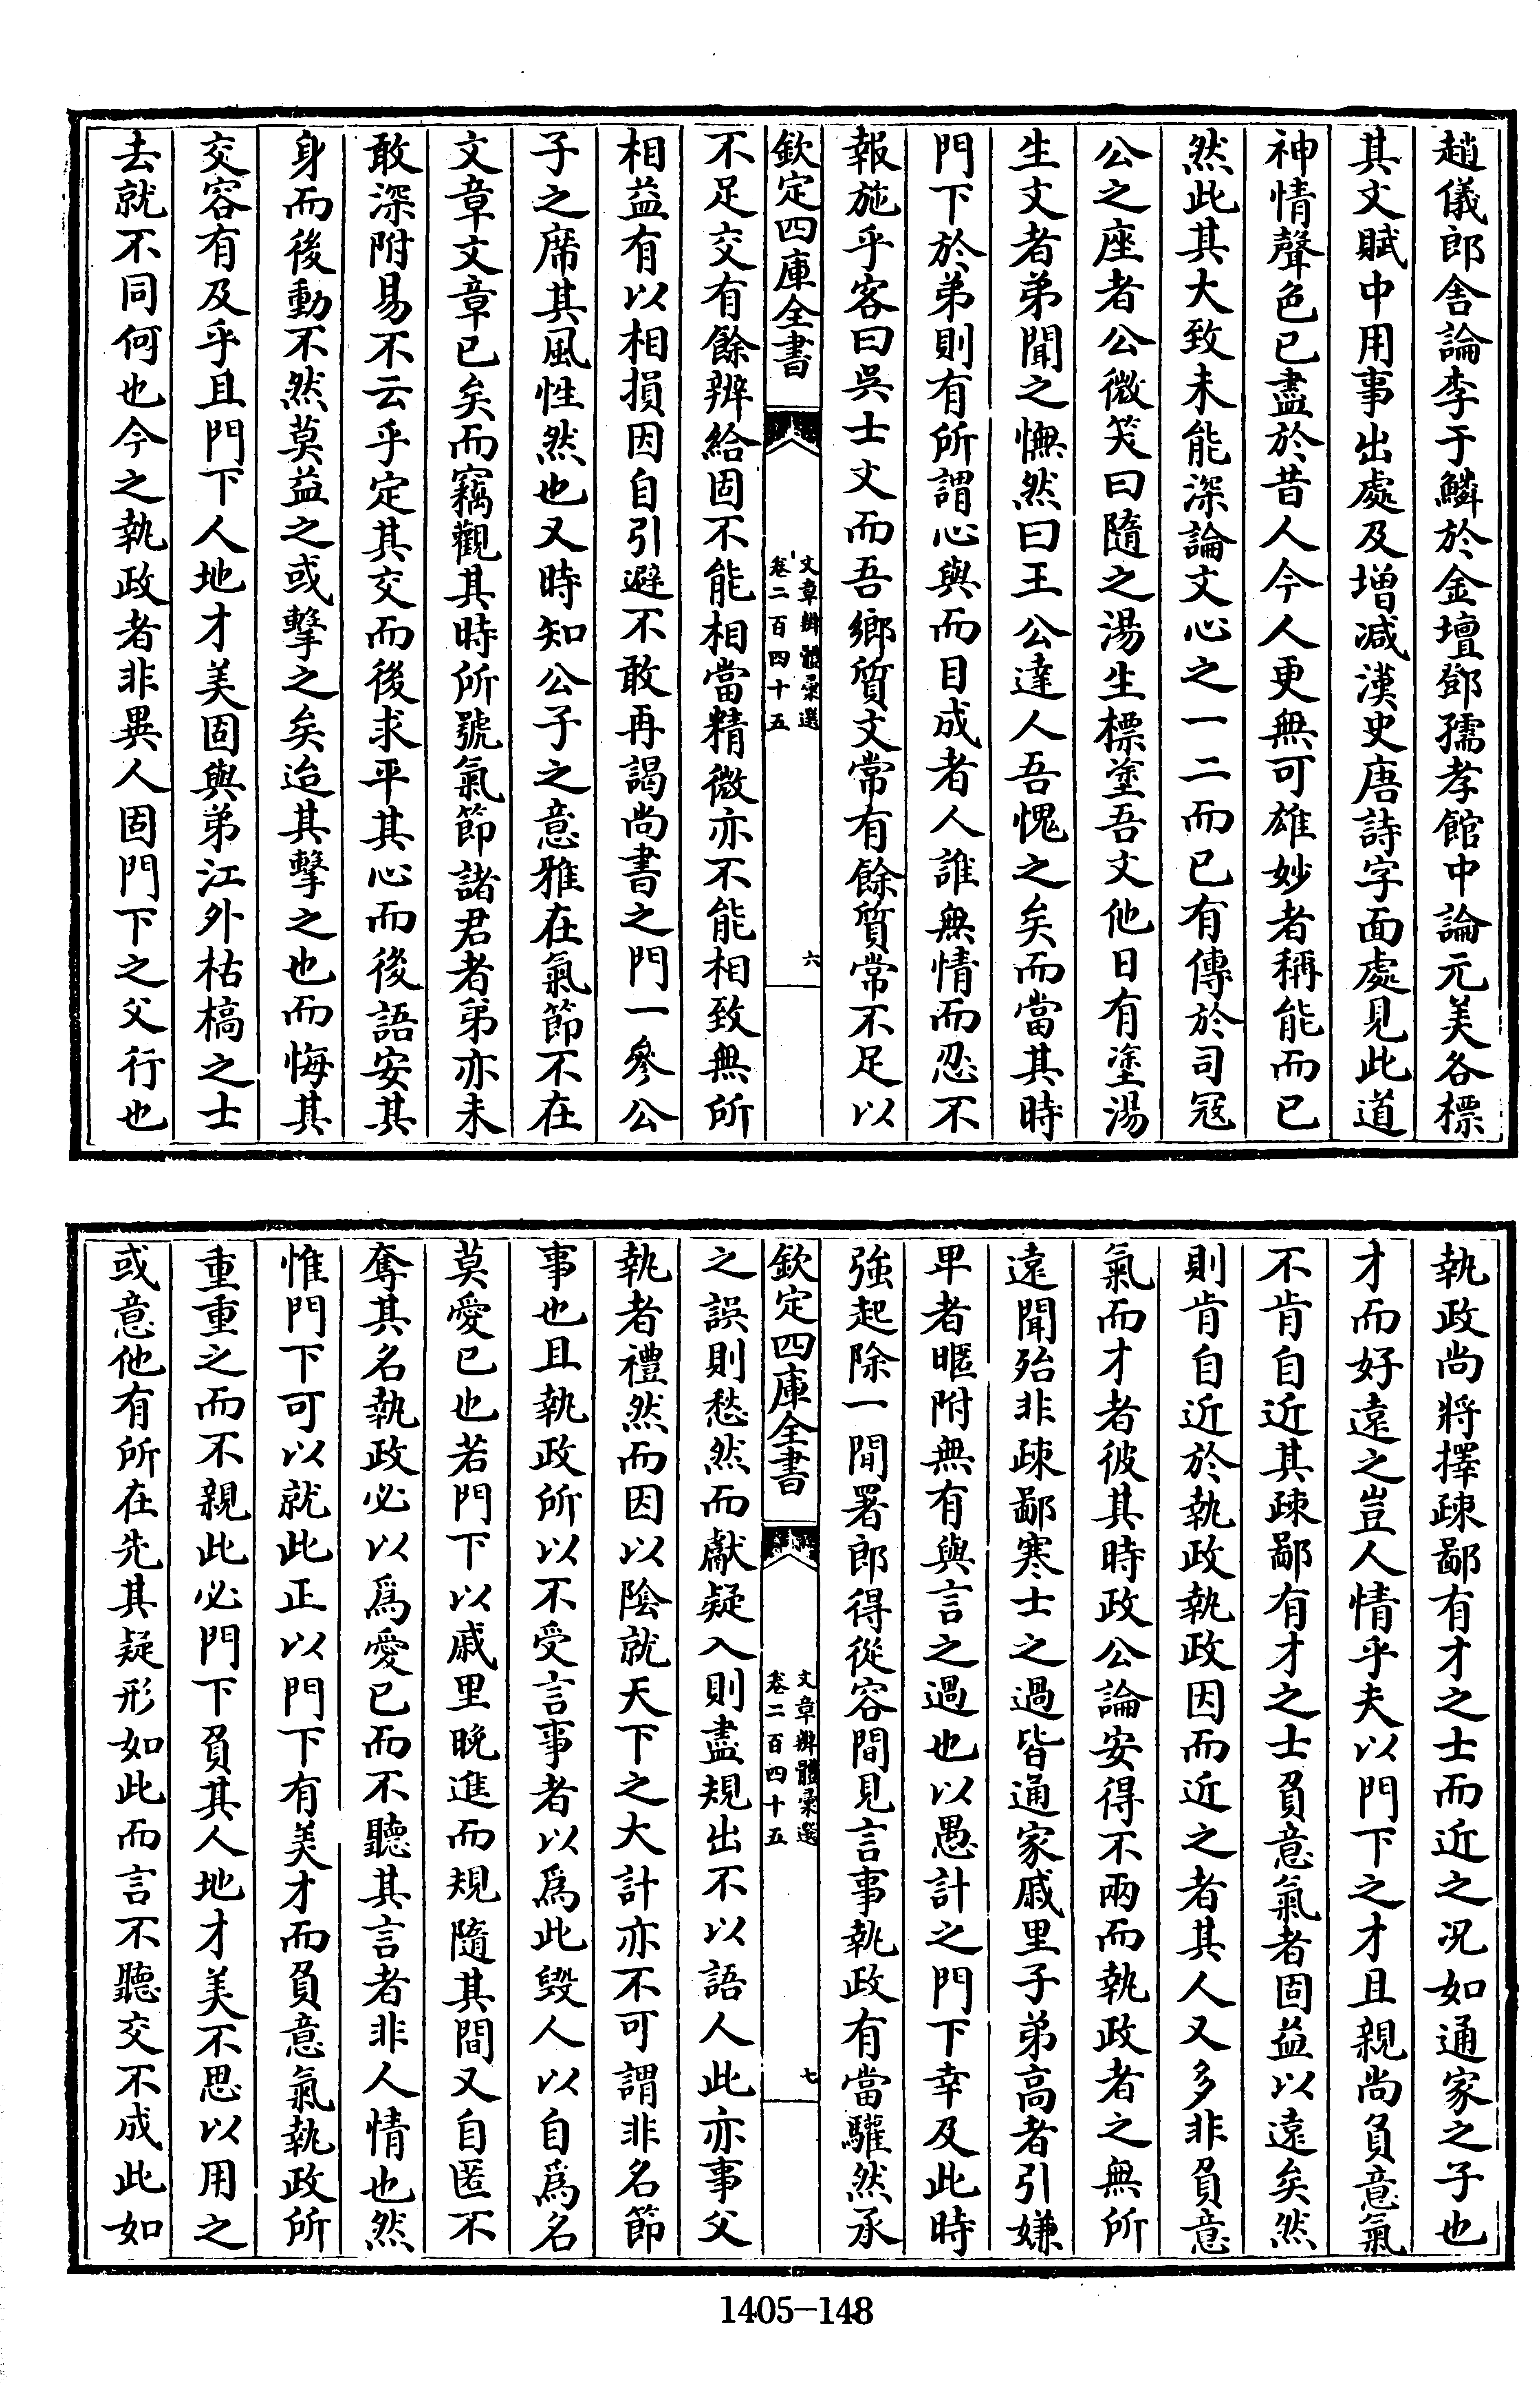 趙儀郎舎論李于鱗於金壇鄧孺孝館中論元美各標
其文賦中用事出處及增减漢史唐詩字面處見此道
神情聲色已盡於昔人今人更無可雄妙者稱能而已
然此其大致未能深論文心之一二而已有傳於司冦
公之座者公微笑曰隨之湯生標塗吾文他日有塗湯
生文者弟聞之憮然曰王公達人吾愧之矣而當其時
門下於弟則有所謂心與而目成者人誰無情而忍不
報施乎客曰吳士文而吾鄉質文常有餘質常不足以
欽定四庫全書
文章辨體彙選
卷二百四十五
六
不足交有餘辨給固不能相當精微亦不能相致無所
相益有以相損因自引避不敢再謁尚書之門一參公
子之席其風性然也又時知公子之意雅在氣節不在
文章文章已矣而竊觀其時所號氣節諸君者弟亦未
敢深附易不云乎定其交而後求平其心而後語安其
身而後動不然莫益之或擊之矣迨其擊之也而悔其
交容有及乎且門下人地才美固與弟江外枯槁之士
去就不同何也今之執政者非異人固門下之父行也
執政尚將擇疎鄙有才之士而近之况如通家之子也
才而好遠之豈人情乎夫以門下之才且親尚負意氣
不肯自近其疎鄙有才之士負意氣者固益以遠矣然
則肯自近於執政執政因而近之者其人又多非負意
氣而才者彼其時政公論安得不兩而執政者之無所
遠聞殆非疎鄙寒士之過皆通家戚里子弟高者引嫌
卑者暱附無有與言之過也以愚計之門下幸及此時
強起除一間署郎得從容間見言事執政有當驩然承
欽定四庫全書
文章辨體彙選
卷二百四十五
七
之誤則愁然而獻疑入則盡規出不以語人此亦事父
執者禮然而因以陰就天下之大計亦不可謂非名節
事也且執政所以不受言事者以爲此毀人以自爲名
莫愛已也若門下以戚里晚進而規隨其間又自匿不
奪其名執政必以爲愛已而不聽其言者非人情也然
惟門下可以就此正以門下有美才而負意氣執政所
重重之而不親此必門下負其人地才美不思以用之
或意他有所在先其疑形如此而言不聽交不成此如
1405-148